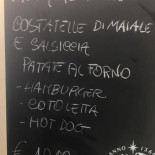 COSTATELLE DI MAIALE
E SALSICCIA
PATATE AL FORNO
- HAMBURGER
- COTOLETTA
- HOT DOG
€
ANNO